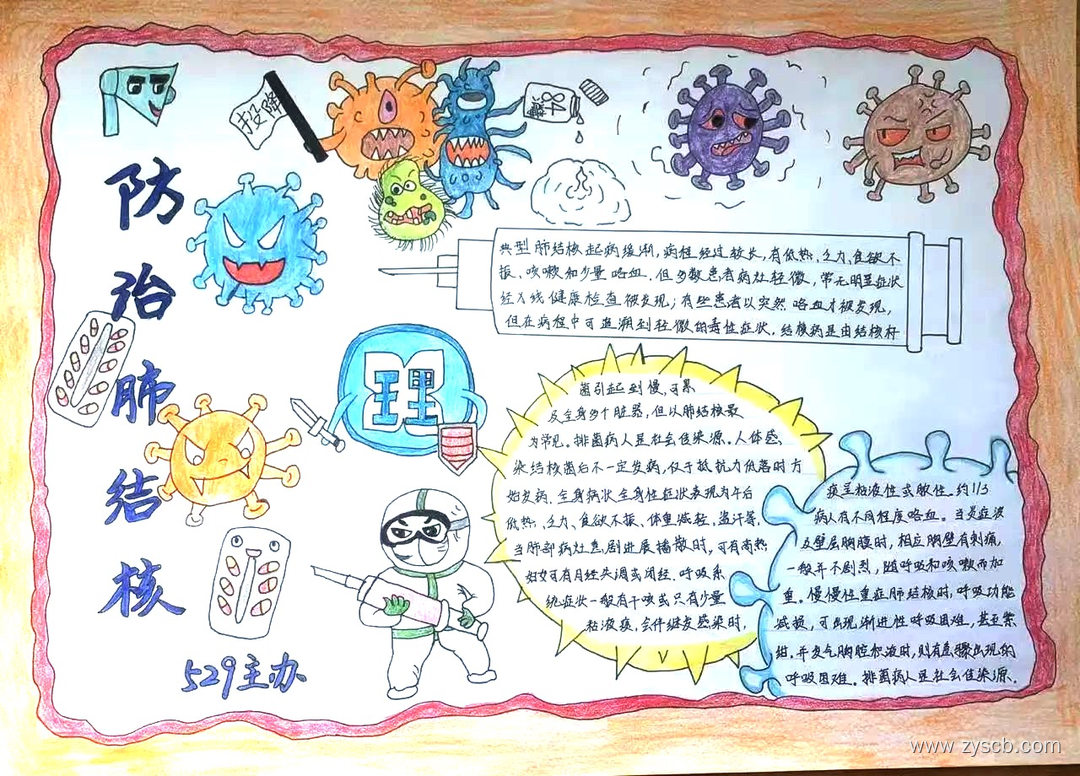 投降
防
治
肺
结
核
529主办
理
典型肺结核起病缓渐,病程经过较长,有低热、乏力、食欲不
振、咳嗽和少量咯血。但多数患者病灶轻微,常无明显症状
经X线健康检查被发现;有些患者以突然咯血才被发现,
但在病程中可追溯到轻微的毒性症状,结核病是由结核杆
菌引起到慢,可累
及全身多个脏器,但以肺结核最
为常见。排菌病人是社会传染源。人体感
染结核菌后不一定发病,仅于抵抗力低落时方
始发病。全身病状全身性症状表现为午后
低热、乏力、食欲不振、体重减轻、盗汗等。
当肺部病灶急剧进展播散时,可有高热
妇女可有月经失调或闭经、呼吸系
统症状一般有干咳或只有少量
粘液痰,合并继发感染时,
痰呈粘液性或脓性。约1/3
病人有不同程度咯血。当炎症波
及壁层胸膜时,相应胸壁有刺痛,
一般并不剧烈,随呼吸和咳嗽而加
重。慢慢性重症肺结核时,呼吸功能
减损,可出现渐进性呼吸困难,甚至紫
绀。并发气胸腔积液时,则有急骤出现的
呼吸困难。排菌病人是社会传染源.
www.zyscb.com